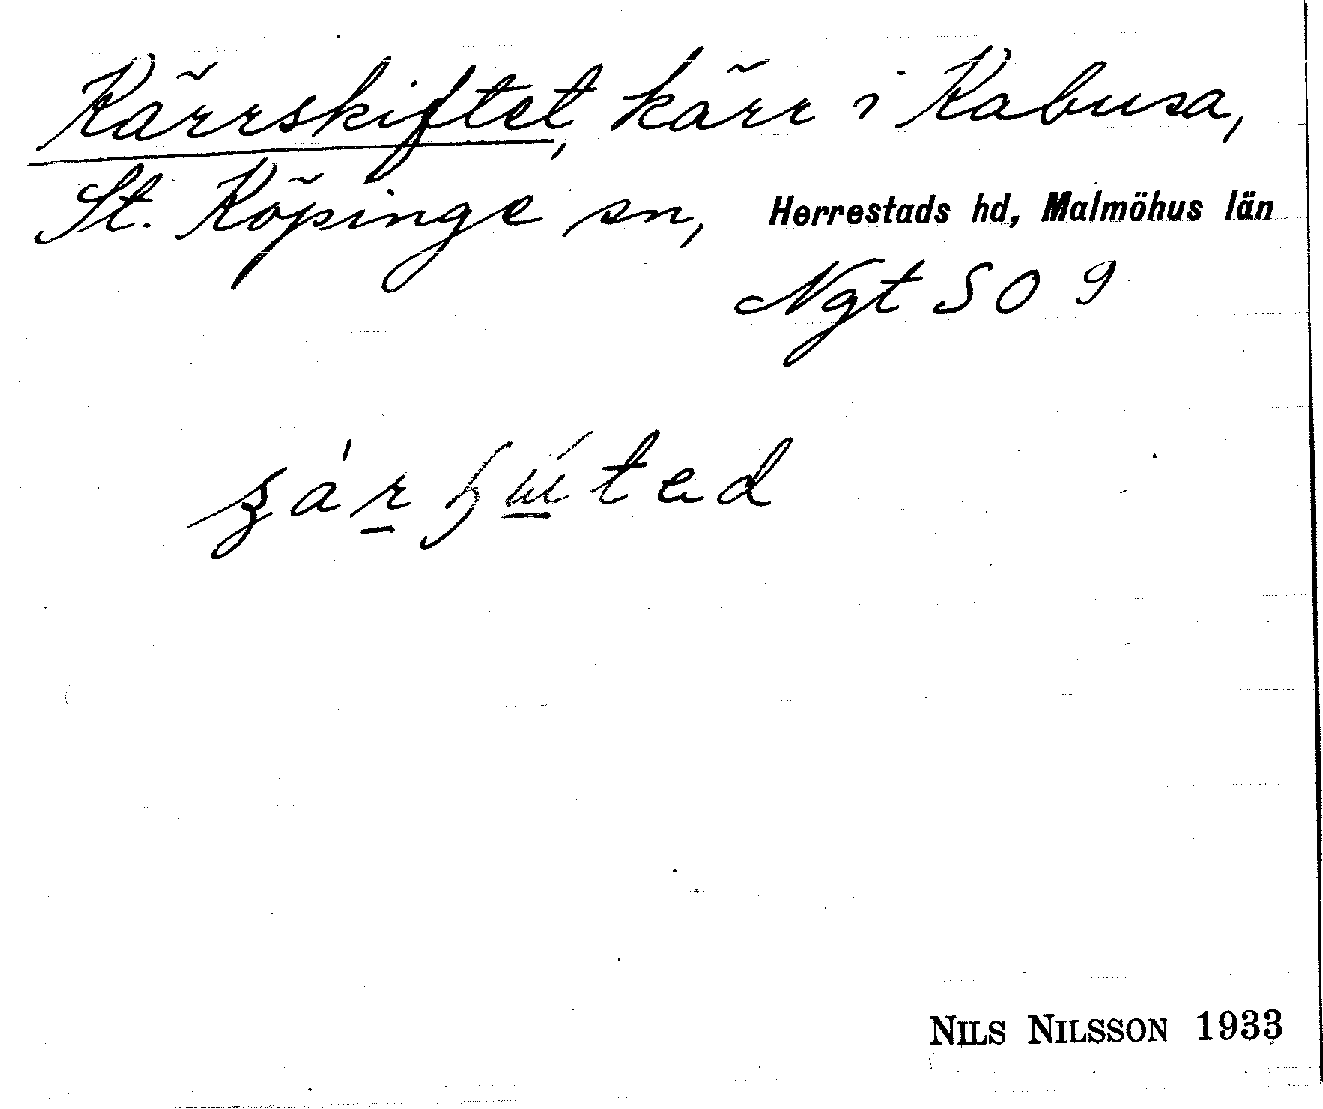 Kärrskiftet, kärr i Kabusa,
St. Köpinge sn, Herrestads hd, Malmöhus län
Ngt SO 9
NILS NILSSON 1933